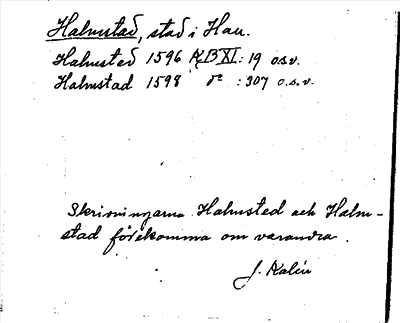 Halmstad, stad i Hall.
Halmsted 1596 KB XI: 19 o.s.v.
Halmstad 1598 d:o : 307 o.s.v.
Skrivningarna Halmsted och Halm-
stad förekomma om varandra.
J. Kalén